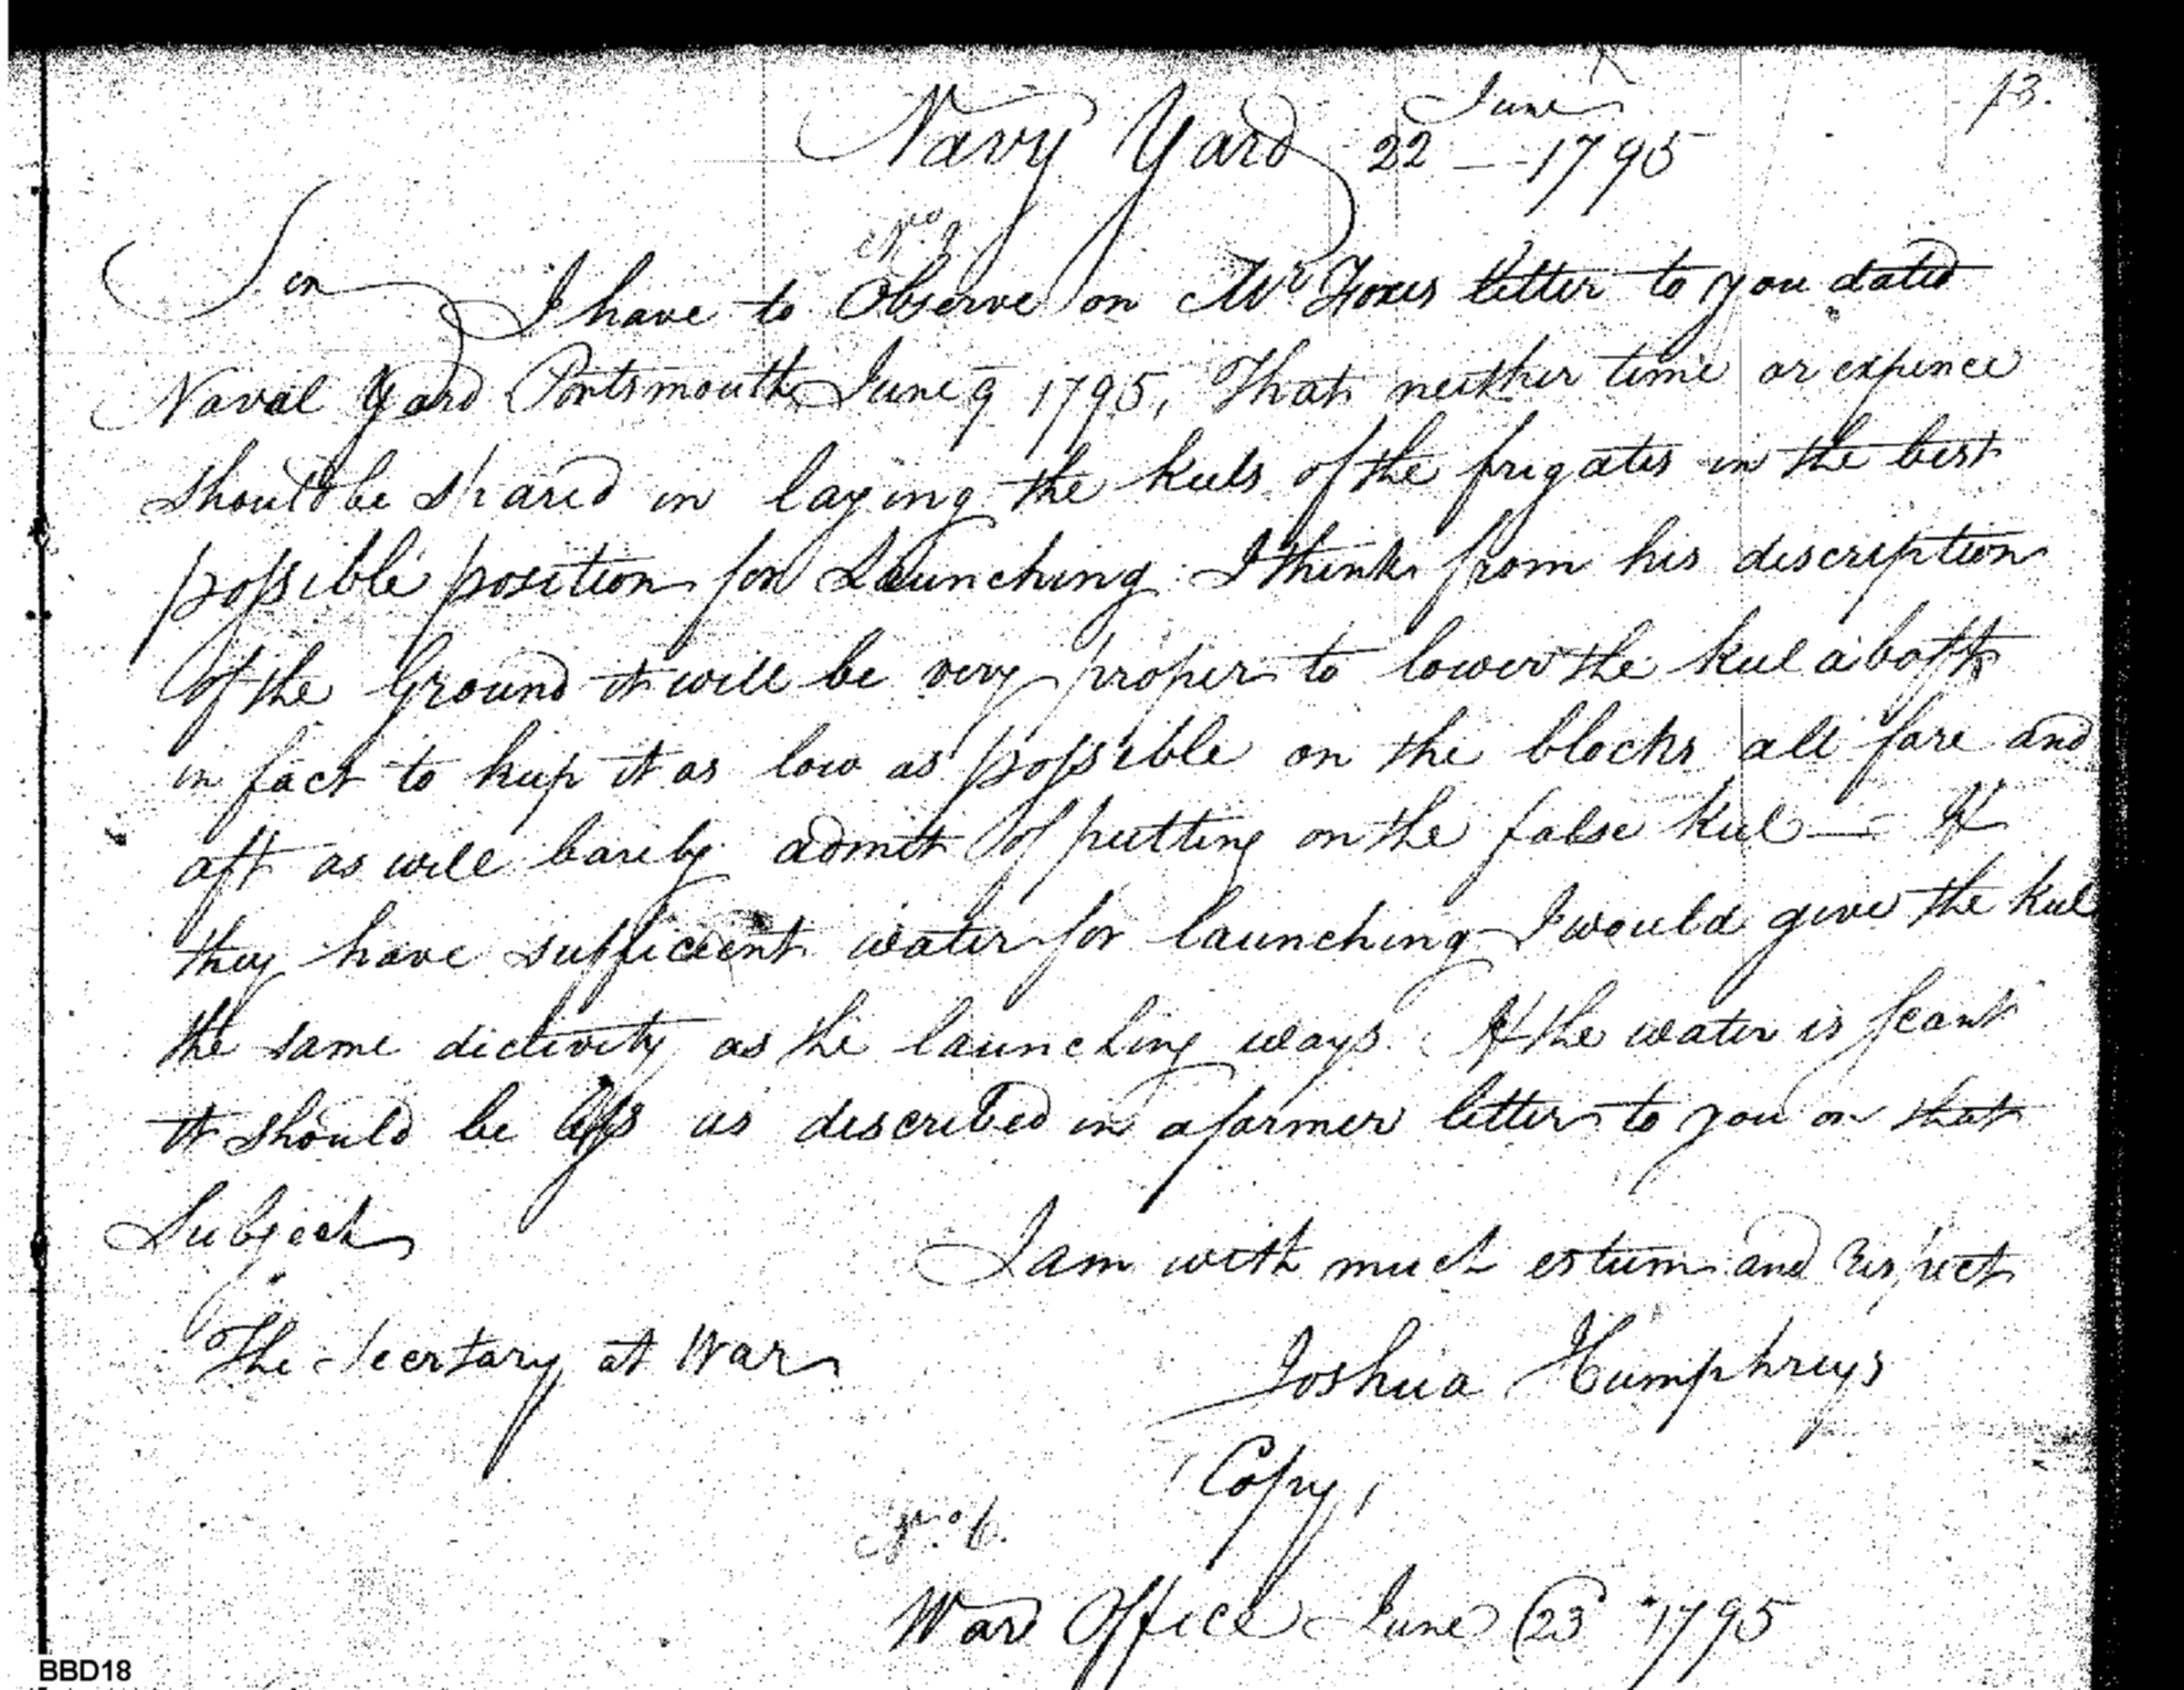 13.
June
Navy Yard 22 — 1795
Sir
I have to Observe on Mr Foxes letter to you dated
Naval Yard Portsmouth June 9 1795, That neither time or expence
should be spared in laying the keels of the frigates in the best
possible position for Launching. I think from his discription
of the Ground it will be very proper to lower the keel abaft
in fact to keep it as low as possible on the blocks all fore and
aft as will barely admit of putting on the false keel — If
they have sufficient water for launching I would give the keel
the same diclivity as the launching ways. If the water is scant
it should be less as described in a former letter to you on that
Subject
I am with much esteem and respect
The Secrtary at War
Joshua Humphreys
Copy,
No. 6.
Ward Office June 23 1795
BBD18